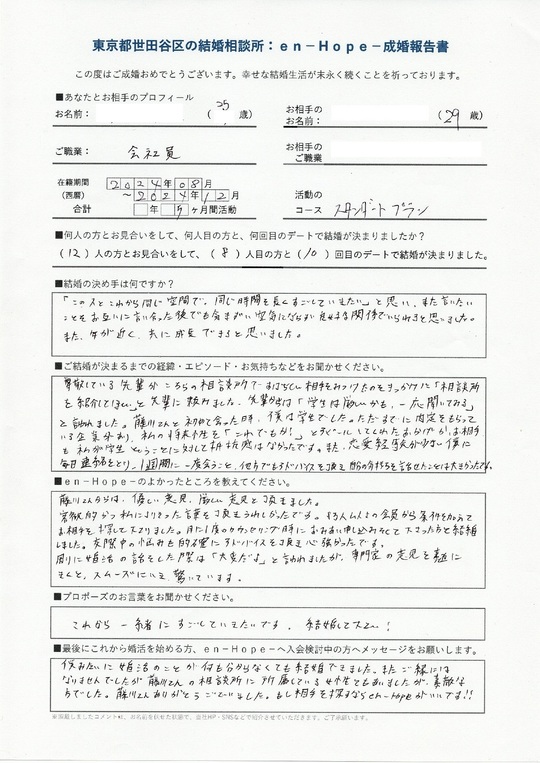 東京都世田谷区の結婚相談所：en－Hope－成婚報告書
この度はご成婚おめでとうございます。幸せな結婚生活が末永く続くことを祈っております。
■あなたとお相手のプロフィール
お名前： （25歳） お相手のお名前： （29歳）
ご職業： 会社員 お相手のご職業
在籍期間（西暦） 2024年08月～2024年12月
合計 年5ヶ月間活動
活動のコース スタンダードプラン
■何人の方とお見合いをして、何人目の方と、何回目のデートで結婚が決まりましたか？
（12）人の方とお見合いをして、（8）人目の方と（10）回目のデートで結婚が決まりました。
■結婚の決め手は何ですか？
「この人とこれから同じ空間で、同じ時間を長くすごしていきたい」と思い、また言いたい
ことをお互いに言い合った後でも気まずい空気にならず良好な関係でいられると思いました。
また、年が近く、共に成長できると思いました。
■ご結婚が決まるまでの経緯・エピソード・お気持ちなどをお聞かせください。
尊敬している先輩がこちらの相談所ですばらしい相手をみつけたのをきっかけに「相談所
を紹介してほしい」と先輩に頼みました。先輩からは「学生は厳しいかも、一応聞いてみる」
と言われました。藤川さんと初めて会った日、僕は学生でした。ただすでに内定をもらって
いる企業があり、私の将来性を「これでもか！」とアピールしてくれたおかげか、お相手
も私が学生ということに対して抵抗感はなかったです。また、恋愛経験が少ない僕に
毎日連絡をとり、1週間に一度会うこと、他にもアドバイスを頂き自分の気持ちを話せたことは大きかったです。
■en－Hope－のよかったところを教えてください。
藤川さんからは、優しい意見、厳しい意見と頂きました。
客観的かつ私によりそった言葉を頂きうれしかったです。
お相手を探して下さりました。月に1度のカウンセリング時に
しました。交際中の悩みも的確にアドバイスを頂き心強かったです。
周りに婚活の話をした際は「大変だよ」と言われましたが、専門家の意見を素直に
きくと、スムーズにいき、驚いています。
■プロポーズのお言葉をお聞かせください。
これから一緒にすごしていきたいです。結婚して下さい！
■最後にこれから婚活を始める方、en－Hope－へ入会検討中の方へメッセージをお願いします。
僕みたいに婚活のことが何も分からなくても結婚できました。またご縁には
なりませんでしたが藤川さんの相談所に所属している女性ともあいましたが、素敵な
方でした。藤川さんありがとうございました。もし相手を探すならen-Hopeがいいです!!